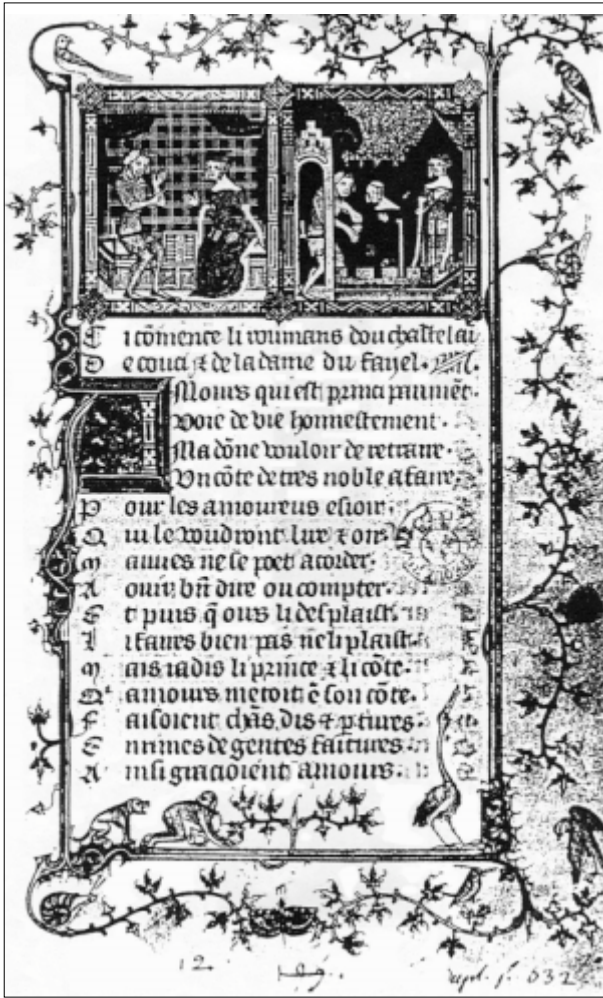 Ci cōmence li roumans dou chastelai
De couci ⁊ de la dame du fayel.
Amours qui est princi paumēt
Voie de vie honnestement.
Ma dōne vouloir de retraire
Un cōte de tres noble afaire.
Pour les amoureus esioir.
Qui le voudront lire ⁊ oir.
Mauves ne se poet acorder.
A ouir bn̄ dire ou compter.
Et puis q̄ ouir li desplaist
Li faires bien pas ne li plaist.
Mais iadis li prince ⁊ li cōte.
Qamours metoit ē son cōte.
Faisoient chās dis ⁊ ptures
En rimes de gentes faitures.
Ainsi gracioient amours.
12.
supl. f. 632